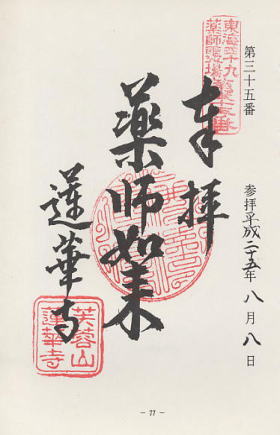 第三十五番
奉拝
薬師如来
蓮華寺
参拝平成二十五年八月八日
東海四十九
薬師霊場
芙蓉山
蓮華寺
- 77 -